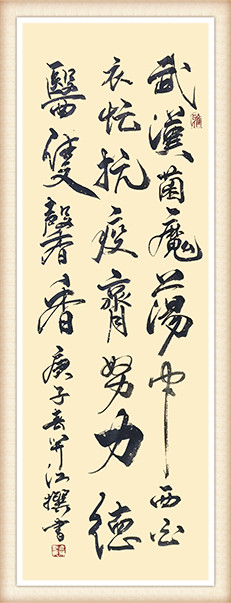 武漢菌魔蕩中西白
衣忙抗疫齊努力德
醫雙馨香庚子春江撰書